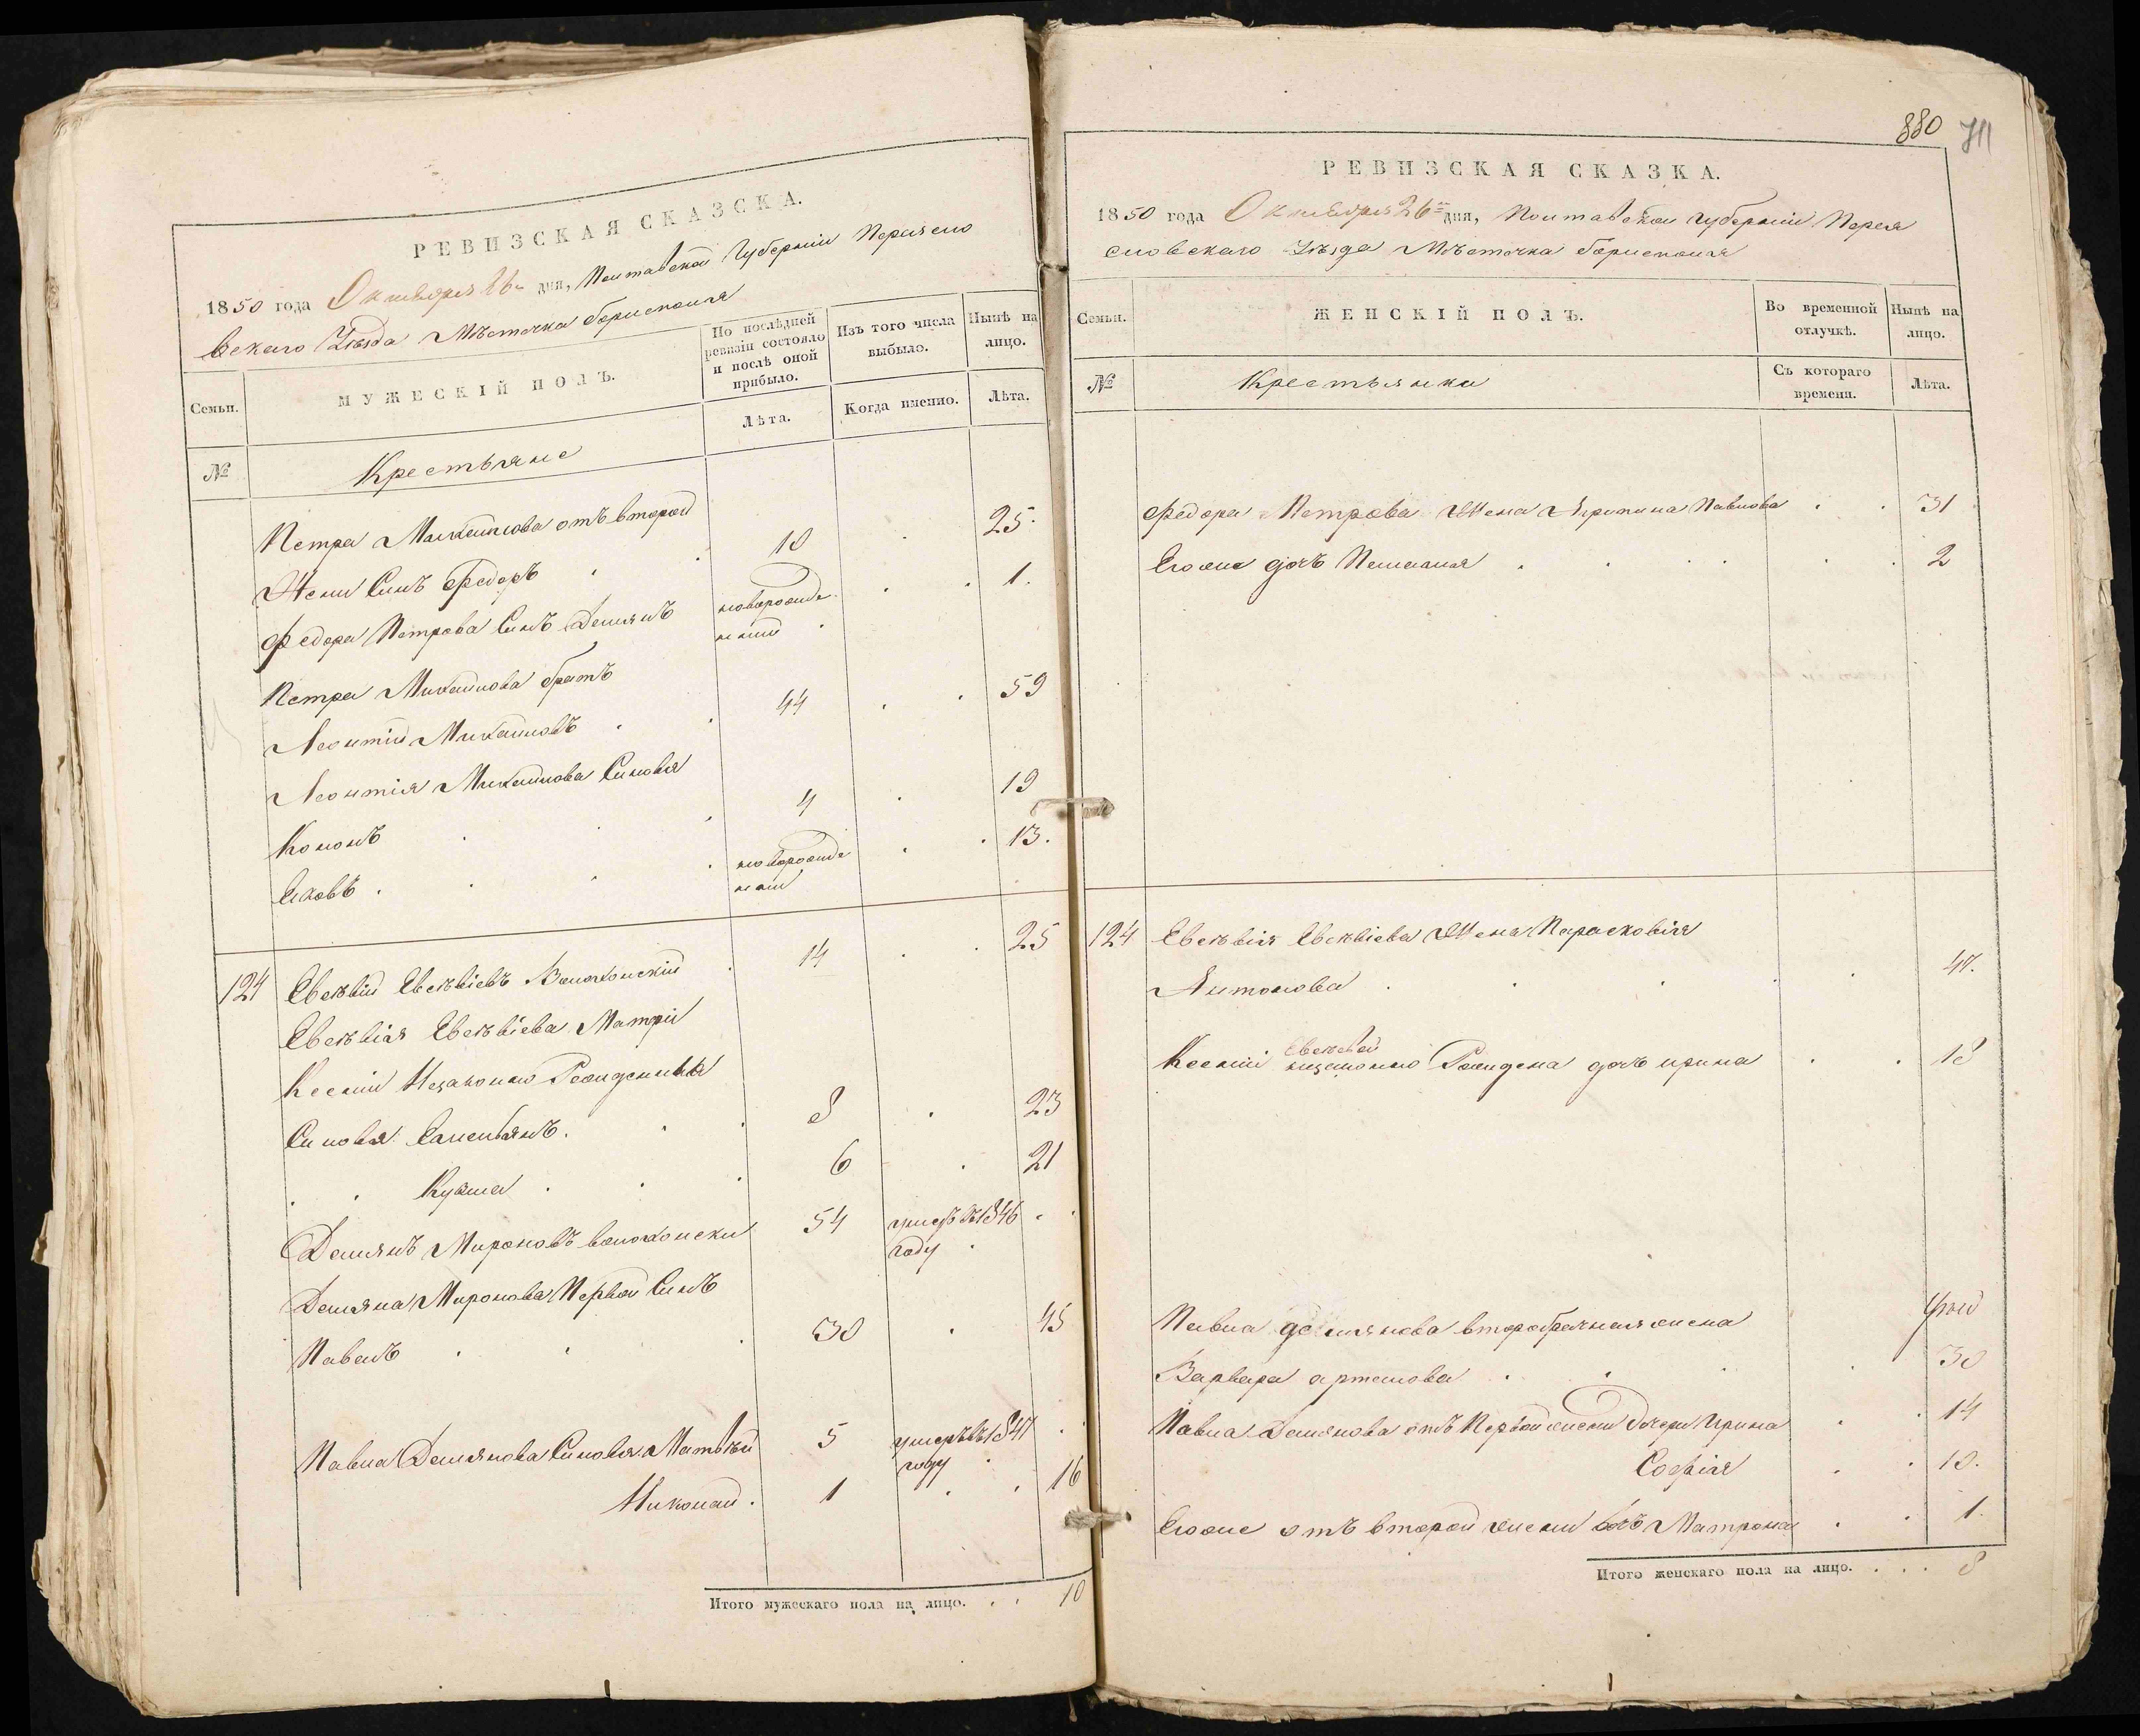 РЕВИЗСКАЯ СКАЗСКА.
1850 года Октября 26 дня, Полтавской Губерніи Переясло
вскаго Уѣзда Мѣстечка борисполя
Семьи.
МУЖЕСКІЙ ПОЛЪ.
По послѣдней ревизіи состояло и послѣ оной прибыло.
Изъ того числа выбыло.
Нынѣ на лицо.
№
Крестьяне
Лѣта.
Когда именно.
Лѣта.
Петра Михайлова отъ второй
Жены Синъ Федоръ 10 25.
Федора Петрова Синъ Демянъ новорожде 1.
нный
Петра Михайлова братъ
Леонтій Михайловъ 44 59
Леонтія Михайлова Синовья
Кононъ 4 19
Яковъ новорожде 13.
нный
124 Евсѣвій Евсѣвіевъ 14 25
Евсѣвія Евсѣвіева Матери
Ксеніи Незаконно
Синовья 8 23
Кузма 6 21
Демянъ Мироновъ 54 умеръ въ 1846
году
Демяна Миронова Первой Синъ
Павелъ 30 45
Павла Демянова Синовья Матвѣй 5 умеръ въ 1847
году
Николай 1 16
Итого мужескаго пола на лицо. 10
880
711
РЕВИЗСКАЯ СКАЗКА.
1850 года Октября 26 дня, Полтавской губерніи Перея
словскаго Уѣзда Мѣстечка борисполя
Семьи.
ЖЕНСКІЙ ПОЛЪ.
Во временной отлучкѣ.
Нынѣ на лицо.
№
Крестьянки
Съ котораго времени.
Лѣта.
Федора Петрова Жена Павлова 31
Егоже дочь Пелагия 2
124 Евсѣвія Евсѣвіева Жена Парасковія
Антонова 47.
Евсѣевой
Ксеніи незаконно дочь ирина 18
Павла демянова второбрачная жена
Варвара артемова 30
Павла Демянова отъ Первой жени Дочери Ирина 14
Софія 10.
Егоже отъ второй жени Матрона 1.
Итого женскаго пола на лицо. 8